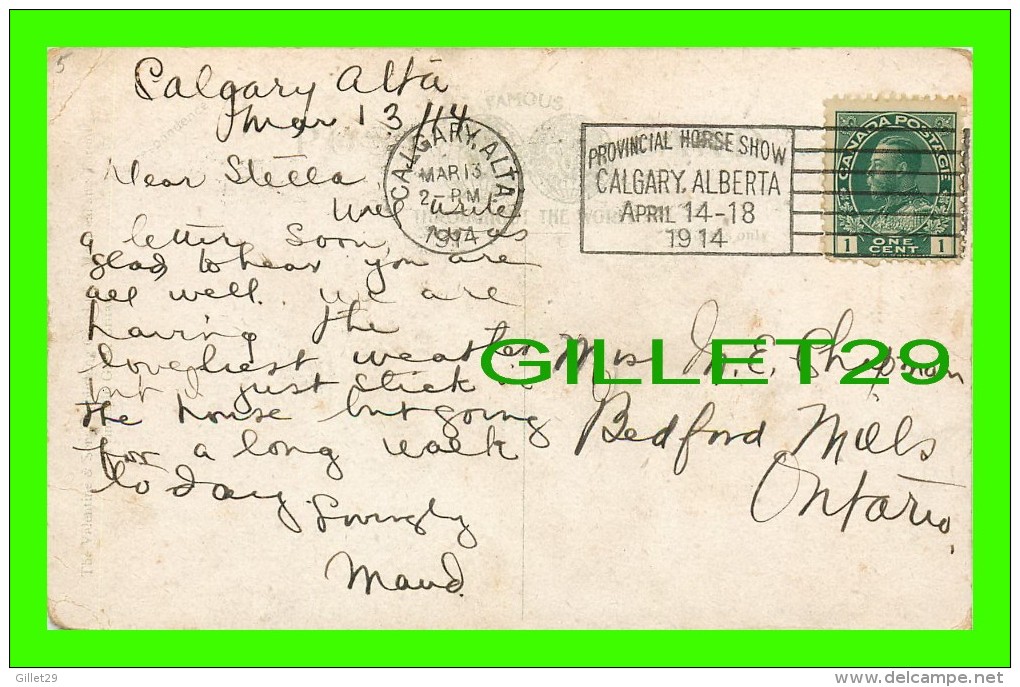 5
Calgary Alta
Mar 13/14
Dear Stella
Will write
a letter soon, was
glad to hear you are
all well. We are
having the
loveliest weather
but I just stick in
the house but going
for a long walk
to day
Lovingly
Maud.
FAMOUS
CALGARY, ALTA.
MAR 13
2 - PM
1914
THROUGHOUT THE WORLD
only
PROVINCIAL HORSE SHOW
CALGARY, ALBERTA
APRIL 14-18
1914
CANADA POSTAGE
1 ONE CENT 1
Mrs M. E. Chapman
Bedford Mills
Ontario,
GILLET29
The Valentine &
Gillet29
delcampe.net